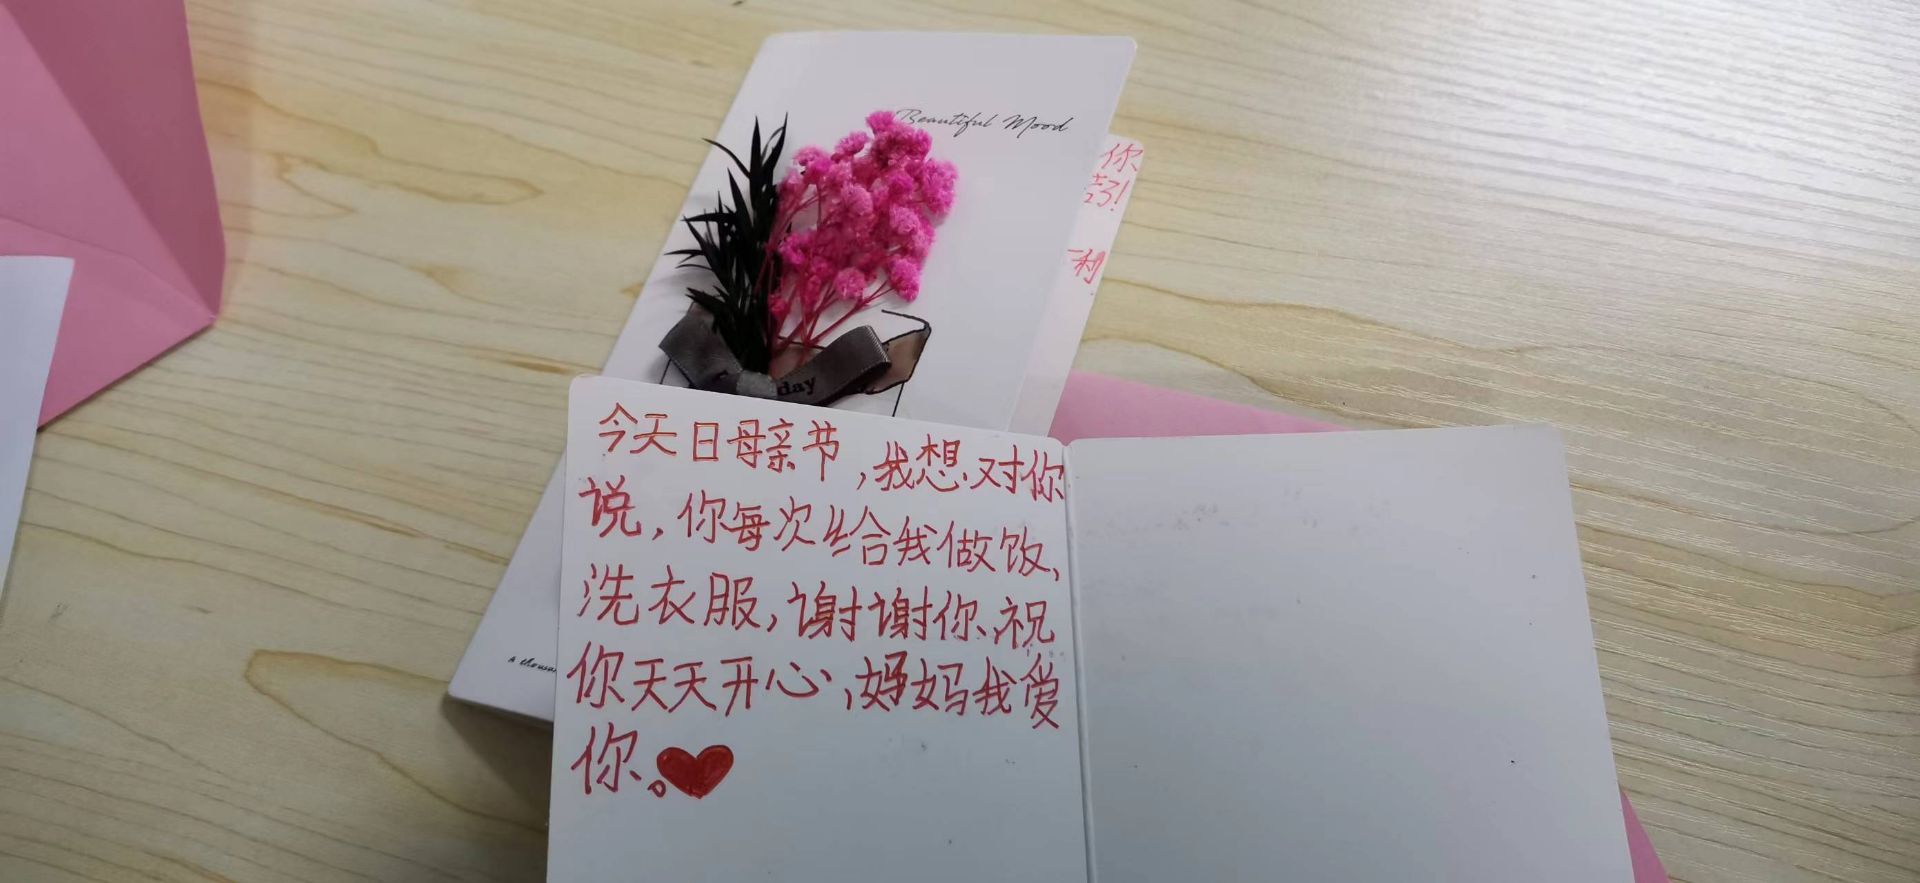 Beautiful Mood
你
苦了!
利
day
今天日母亲节,我想对你
说,你每次给我做饭,
洗衣服,谢谢你,祝
你天天开心,妈妈我爱
你。